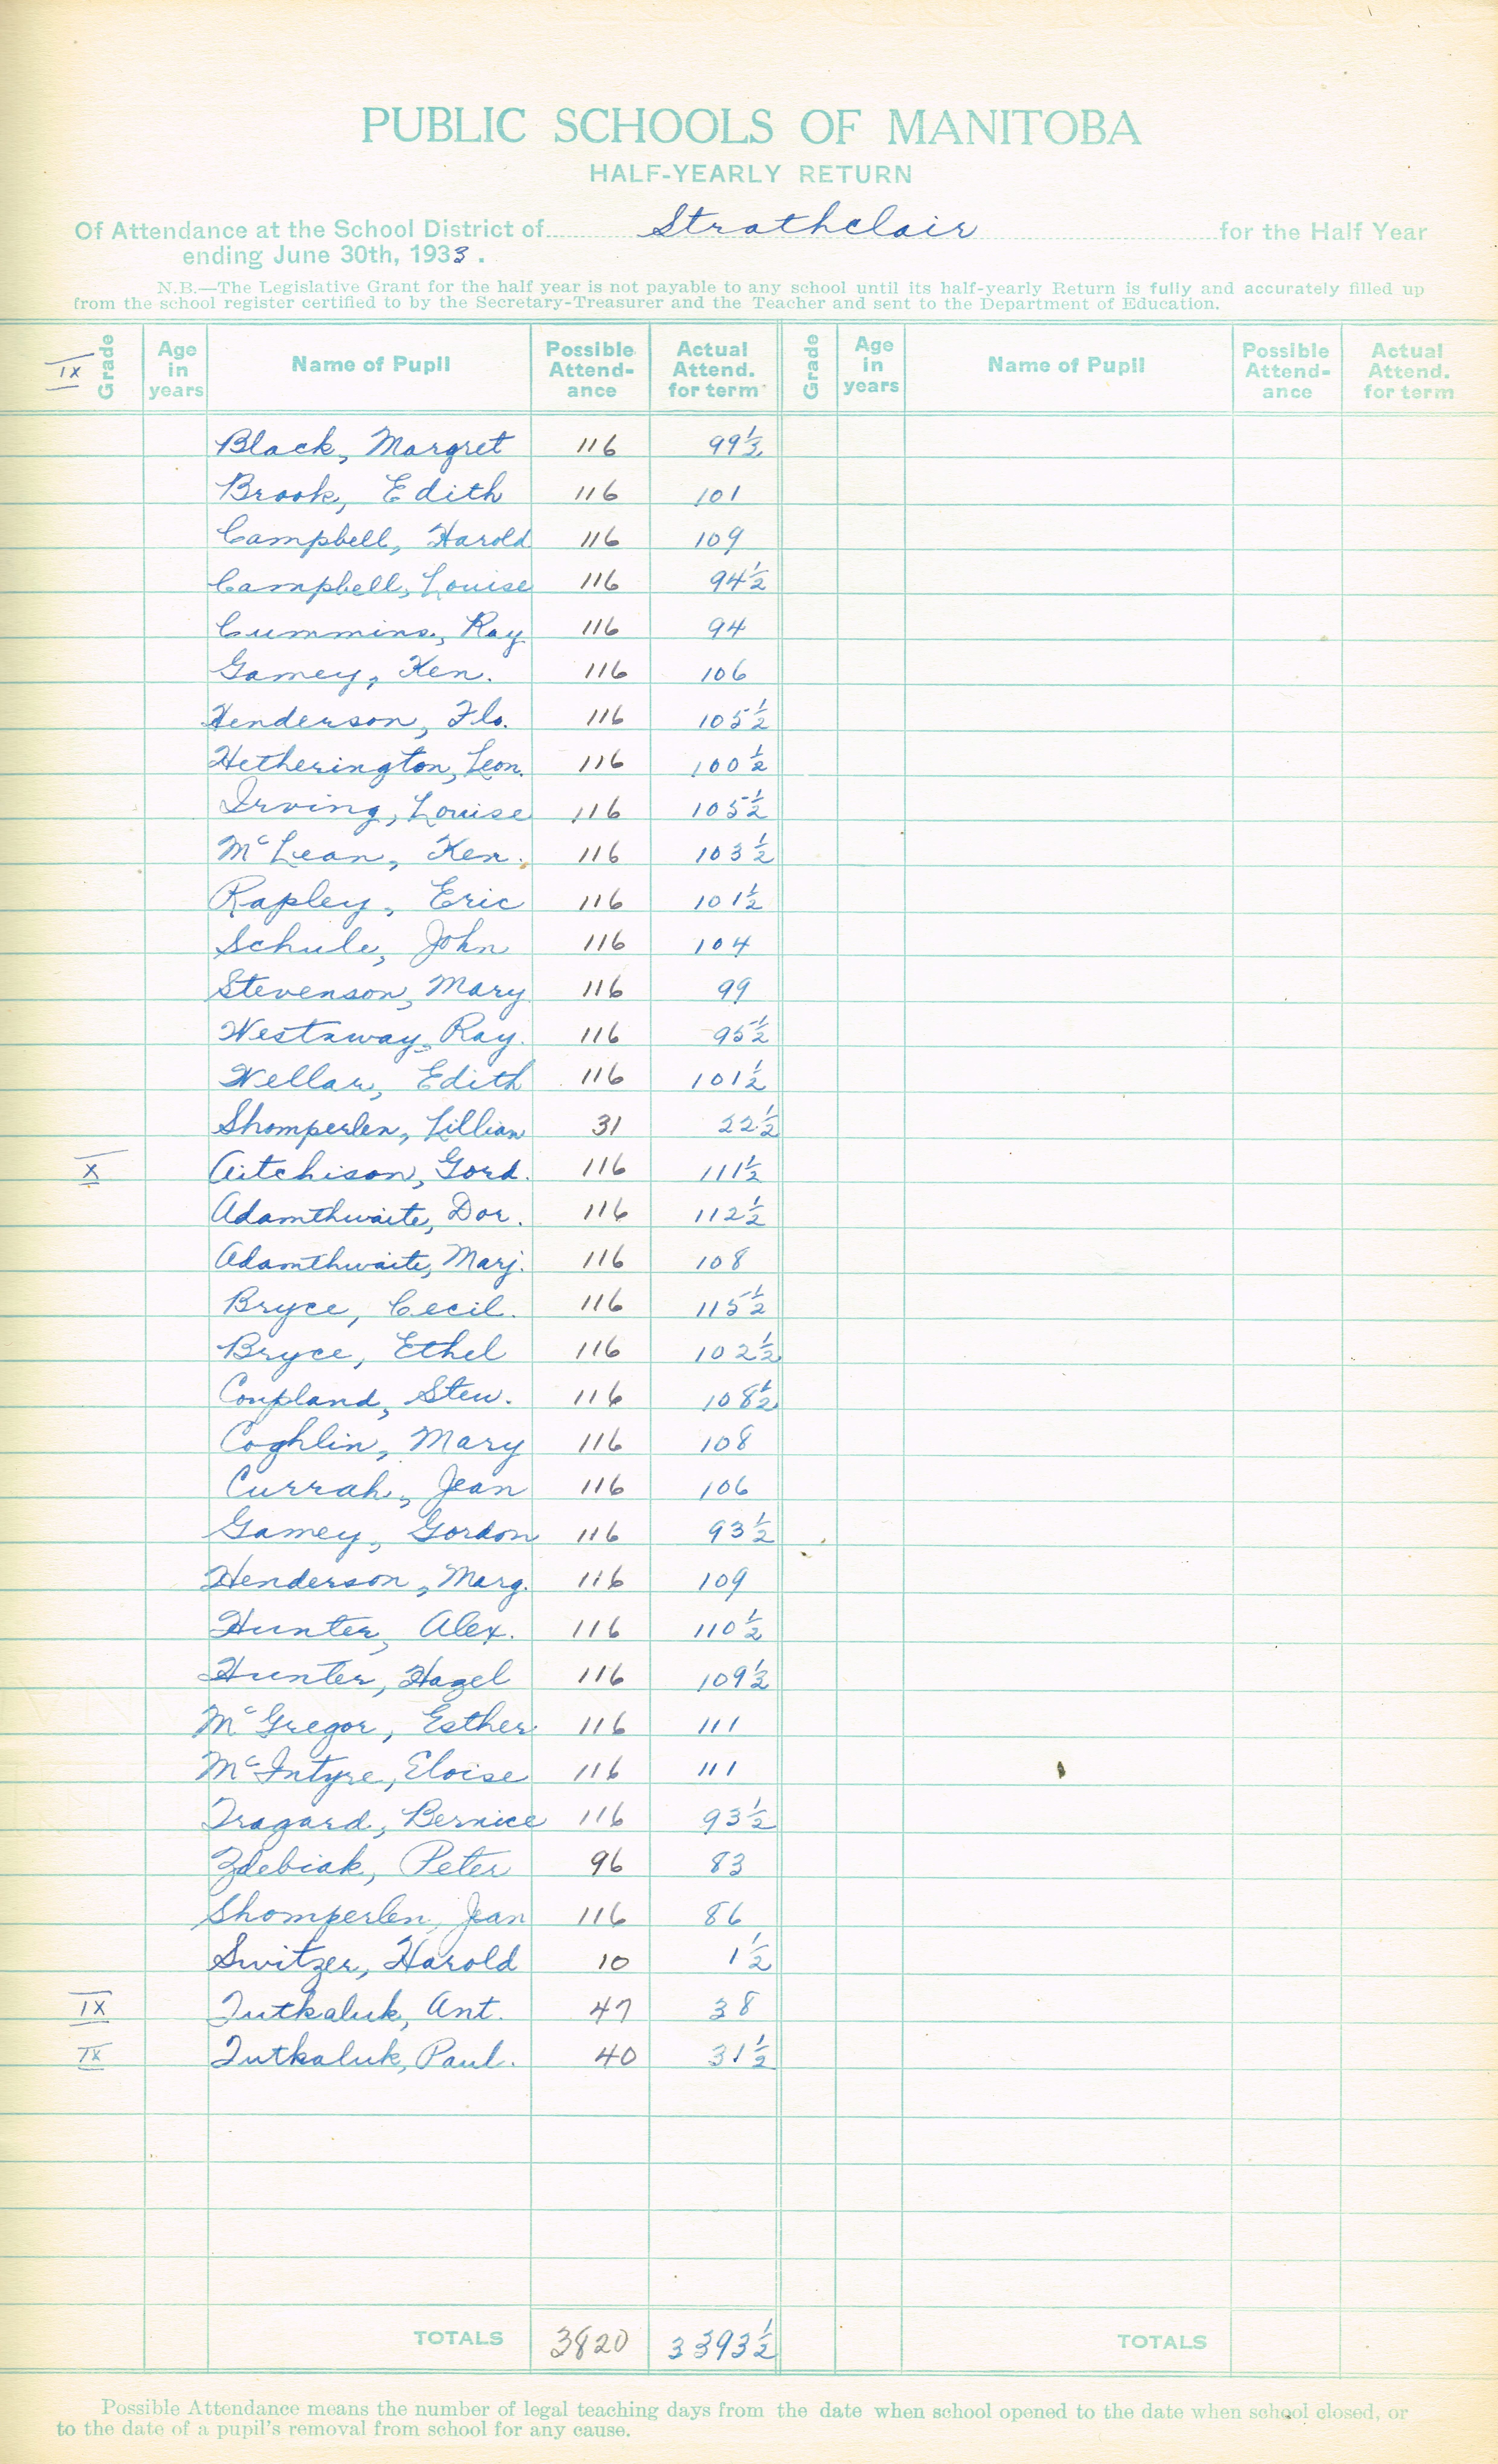 PUBLIC SCHOOLS OF MANITOBA
HALF-YEARLY RETURN
Of Attendance at the School District of Strathclair for the Half Year
ending June 30th, 1933.
N.B.—The Legislative Grant for the half year is not payable to any school until its half-yearly Return is fully and accurately filled up
from the school register certified to by the Secretary-Treasurer and the Teacher and sent to the Department of Education.
IX Grade Age in years Name of Pupil Possible Attend-ance Actual Attend. for term Grade Age in years Name of Pupil Possible Attend-ance Actual Attend. for term
Black, Margret 116 99½
Brook, Edith 116 101
Campbell, Harold 116 109
Campbell, Louise 116 94½
Cummins, Ray 116 94
Gamey, Ken. 116 106
Henderson, Flo. 116 105½
Hetherington, Leon. 116 100½
Irving, Louise 116 105½
McLean, Ken. 116 103½
Rapley, Eric 116 101½
Schule, John 116 104
Stevenson, Mary 116 99
Westaway, Ray. 116 95½
Wellar, Edith 116 101½
Shomperlen, Lillian 31 22½
X Aitchison, Gord. 116 111½
Adamthwaite, Dor. 116 112½
Adamthwaite, Marj. 116 108
Bryce, Cecil. 116 115½
Bryce, Ethel 116 102½
Coupland, Stew. 116 108½
Coghlin, Mary 116 108
Currah, Jean 116 106
Gamey, Gordon 116 93½
Henderson, Marg. 116 109
Hunter, Alex. 116 110½
Hunter, Hazel 116 109½
McGregor, Esther 116 111
McIntyre, Eloise 116 111
Tragard, Bernice 116 93½
Zdebiak, Peter 96 83
Shomperlen, Jean 116 86
Switzer, Harold 10 1½
IX Tutkaluk, Ant. 47 38
IX Tutkaluk, Paul. 40 31½
TOTALS 3820 3393½ TOTALS
Possible Attendance means the number of legal teaching days from the date when school opened to the date when school closed, or
to the date of a pupil's removal from school for any cause.